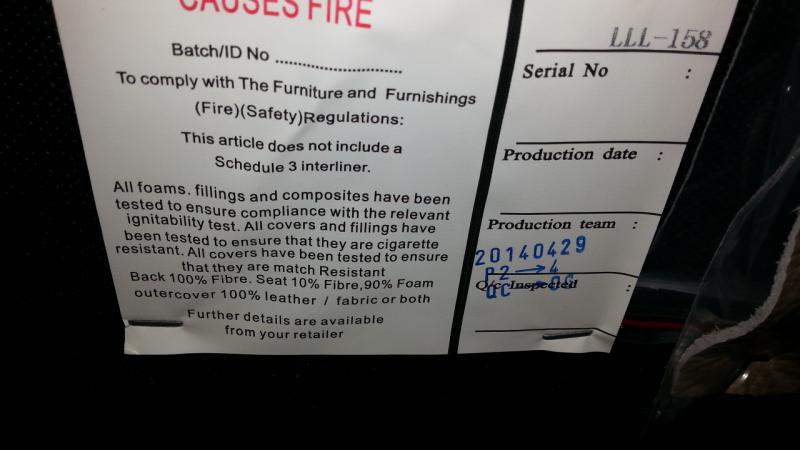 CAUSES FIRE
Batch/ID No ........................
To comply with The Furniture and Furnishings
(Fire)(Safety)Regulations:
This article does not include a
Schedule 3 interliner.
All foams. fillings and composites have been
tested to ensure compliance with the relevant
ignitability test. All covers and fillings have
been tested to ensure that they are cigarette
resistant. All covers have been tested to ensure
that they are match Resistant
Back 100% Fibre. Seat 10% Fibre,90% Foam
outercover 100% leather / fabric or both
Further details are available
from your retailer
LLL-158
Serial No :
Production date :
Production team :
20140429
P2→4
Q/c Inspected :
QC